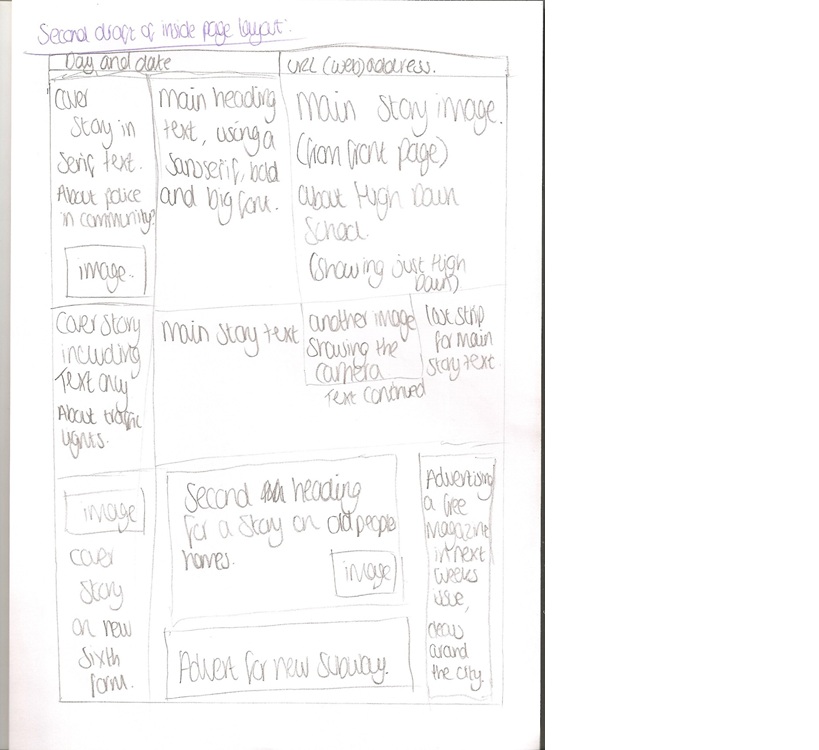 Second draft of inside page layout:
Day and date
URL (web) address.
Cover
Story in
Serif text.
About police
in community
image.
main heading
text, using a
sansserif, bold
and big font.
Main Story image.
(from front page)
about High Down
School.
(showing just High
Down).
Cover Story
including
Text only
About traffic
lights.
Main Story text
another image
showing the
camera
Text continued
last strip
for main
story text.
image
cover
story
on new
sixth
form.
Second heading
for a story on old people
homes.
image
Advert for new subway.
Advertising
a free
magazine
in next
weeks
issue,
around
the city.